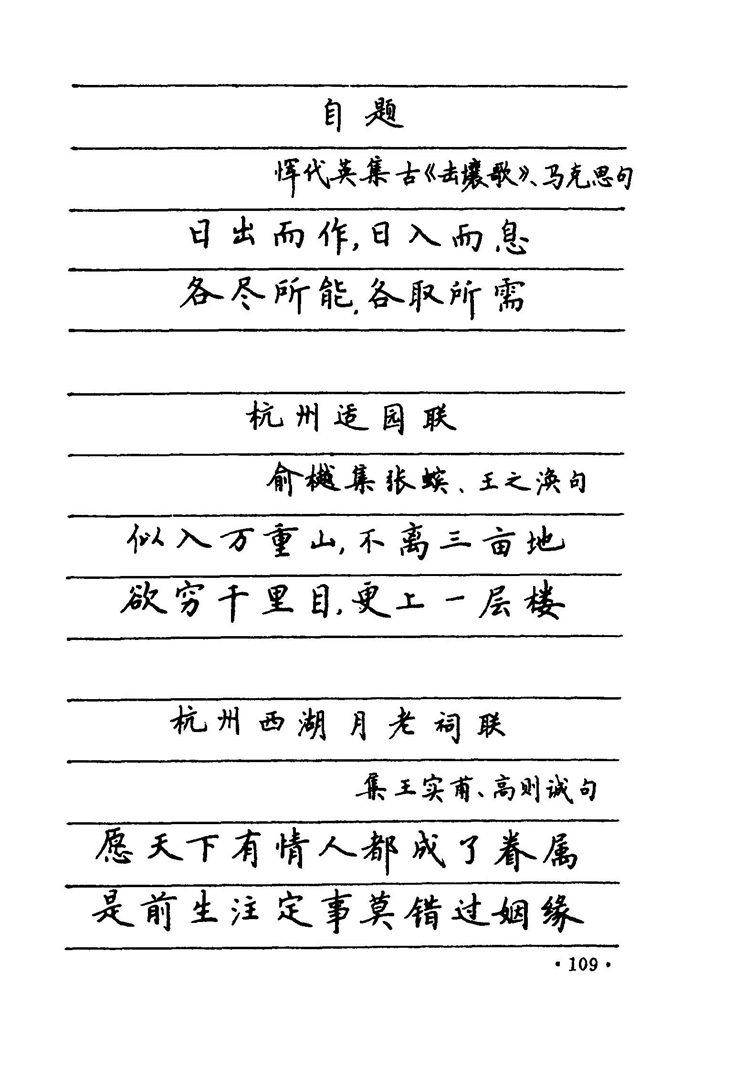 自题
恽代英集古《击壤歌》、马克思句
日出而作,日入而息
各尽所能,各取所需
杭州适园联
俞樾集张蠙、王之涣句
似入万重山,不离三亩地
欲穷千里目,更上一层楼
杭州西湖月老祠联
集王实甫、高则诚句
愿天下有情人都成了眷属
是前生注定事莫错过姻缘
·109·